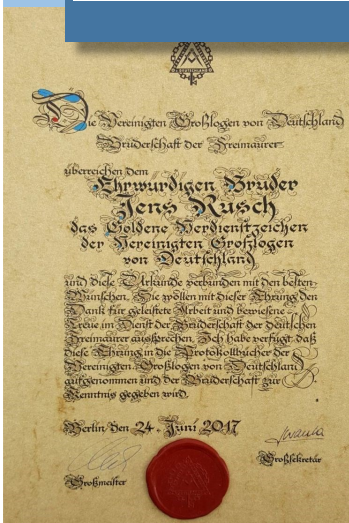 Die Vereinigten Großlogen von Deutschland
Bruderschaft der Freimaurer
überreichen dem
Ehrwürdigen Bruder
Jens Rusch
das Goldene Verdienstzeichen
der Vereinigten Großlogen
von Deutschland
und diese Urkunde verbunden mit den besten
Wünschen. Sie wollen mit dieser Ehrung den
Dank für geleistete Arbeit und bewiesene
Treue im Dienst der Bruderschaft der deutschen
Freimaurer aussprechen. Ich habe verfügt, daß
diese Ehrung in die Protokollbücher der
Vereinigten Großlogen von Deutschland
aufgenommen und der Bruderschaft zur
Kenntnis gegeben wird.
Berlin den 24. Juni 2017
Großsekretär
Großmeister